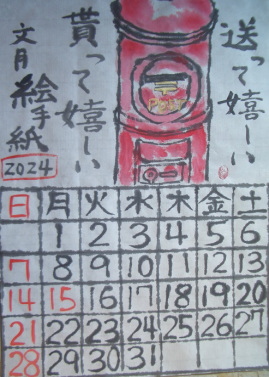 送って嬉しい
貰って嬉しい
文月 絵手紙
2024
POST
日 月 火 水 木 金 土
1 2 3 4 5 6
7 8 9 10 11 12 13
14 15 16 17 18 19 20
21 22 23 24 25 26 27
28 29 30 31